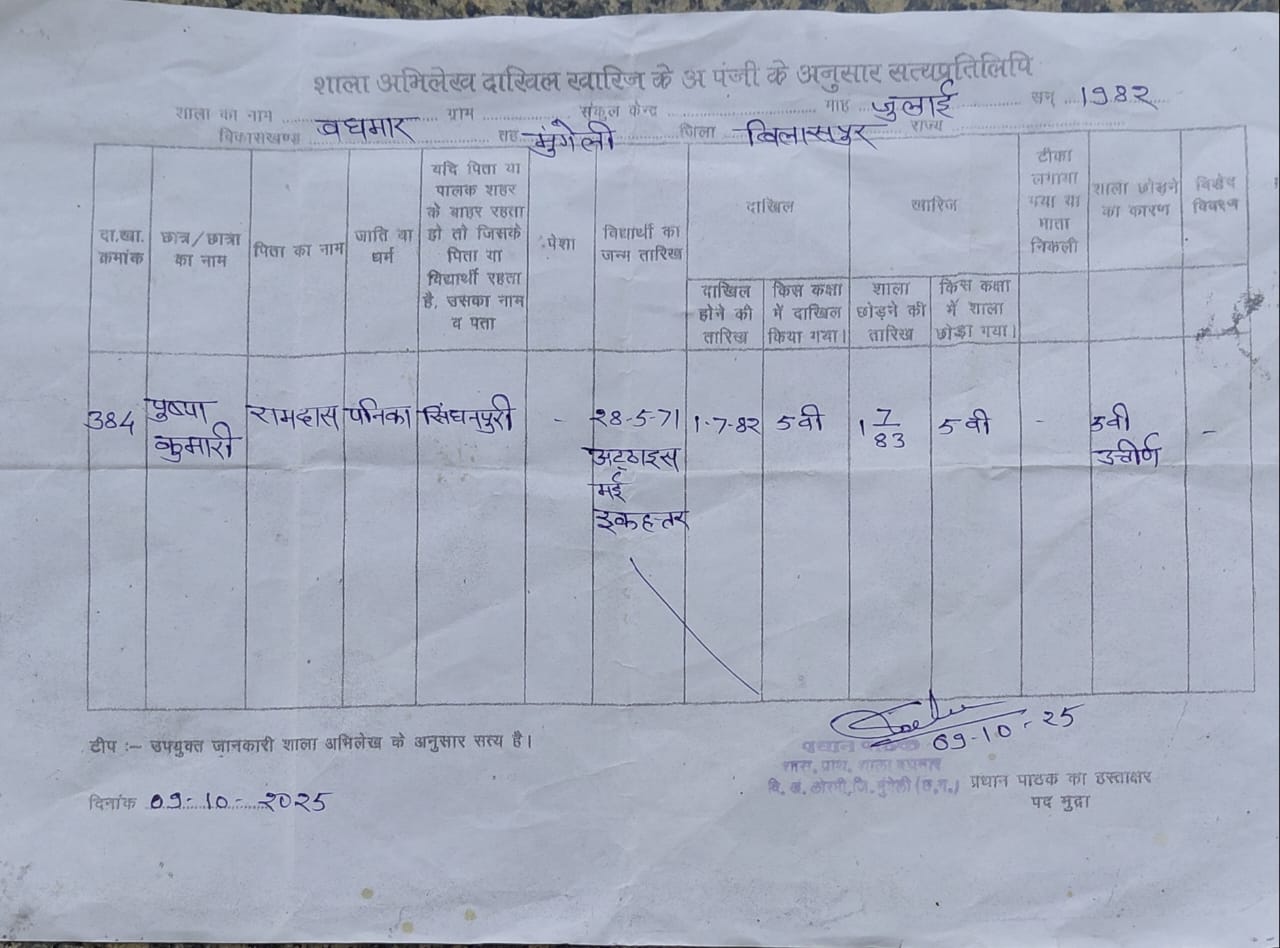 शाला अभिलेख दाखिल खारिज के अ पंजी के अनुसार सत्यप्रतिलिपि
शाला का नाम ग्राम संकुल केन्द्र माह जुलाई सन् 1982
विकासखण्ड बधमार तह मुंगेली जिला बिलासपुर राज्य
दा.खा. क्रमांक
छात्र/छात्रा का नाम
पिता का नाम
जाति वा धर्म
यदि पिता या
पालक शहर
के बाहर रहता
हो तो जिसके
पिता या
विद्यार्थी रहता
है, उसका नाम
व पता
पेशा
विद्यार्थी का
जन्म तारिख
दाखिल
खारिज
टीका
लगाया
गया या
माता
निकली
शाला छोड़ने
का कारण
विशेष
विवरण
दाखिल
होने की
तारिख
किस कक्षा
में दाखिल
किया गया।
शाला
छोड़ने की
तारिख
किस कक्षा
में शाला
छोड़ा गया।
384 पुष्पा कुमारी रामदास पनिका सिंघनपुरी - २8-5-71 1-7-8२ 5वी 1 7/83 5 वी - 5वी उत्तीर्ण -
अट्ठाइस
मई
इकहत्तर
टीप :- उपयुक्त जानकारी शाला अभिलेख के अनुसार सत्य है।
09-10-25
प्रधान पाठक
शास. प्राथ. शाला बधमार
वि. खं. लोरमी, जि. मुंगेली (छ.ग.)
प्रधान पाठक का हस्ताक्षर
पद मुद्रा
दिनांक 09-10-२0२5